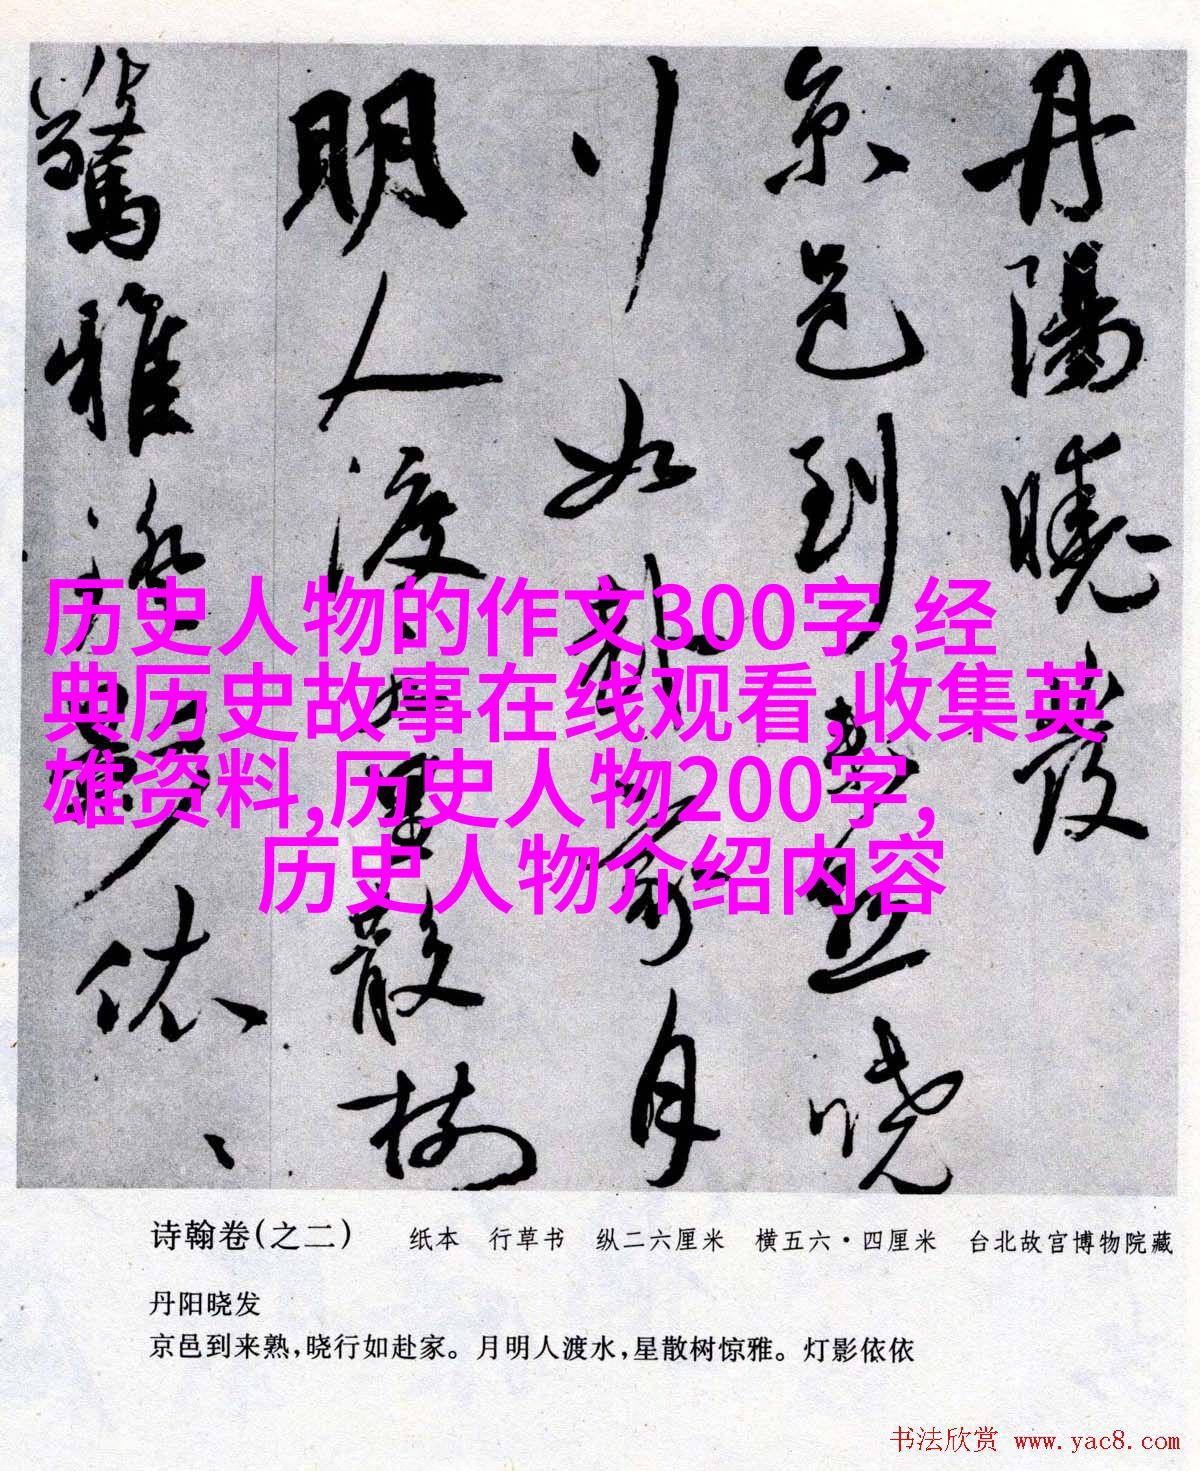 丹陽曉發
京邑到來熟曉
行如赴家月
明人渡水星散樹
驚雅燈影依、、
历史人物的作文300字,经
典历史故事在线观看,收集英
雄资料,历史人物200字,
历史人物介绍内容
诗翰卷(之二) 纸本 行草书 纵二六厘米 横五六·四厘米 台北故宫博物院藏
丹阳晓发
京邑到来熟,晓行如赴家。月明人渡水,星散树惊雅。灯影依依
书法欣赏 www.yac8.com